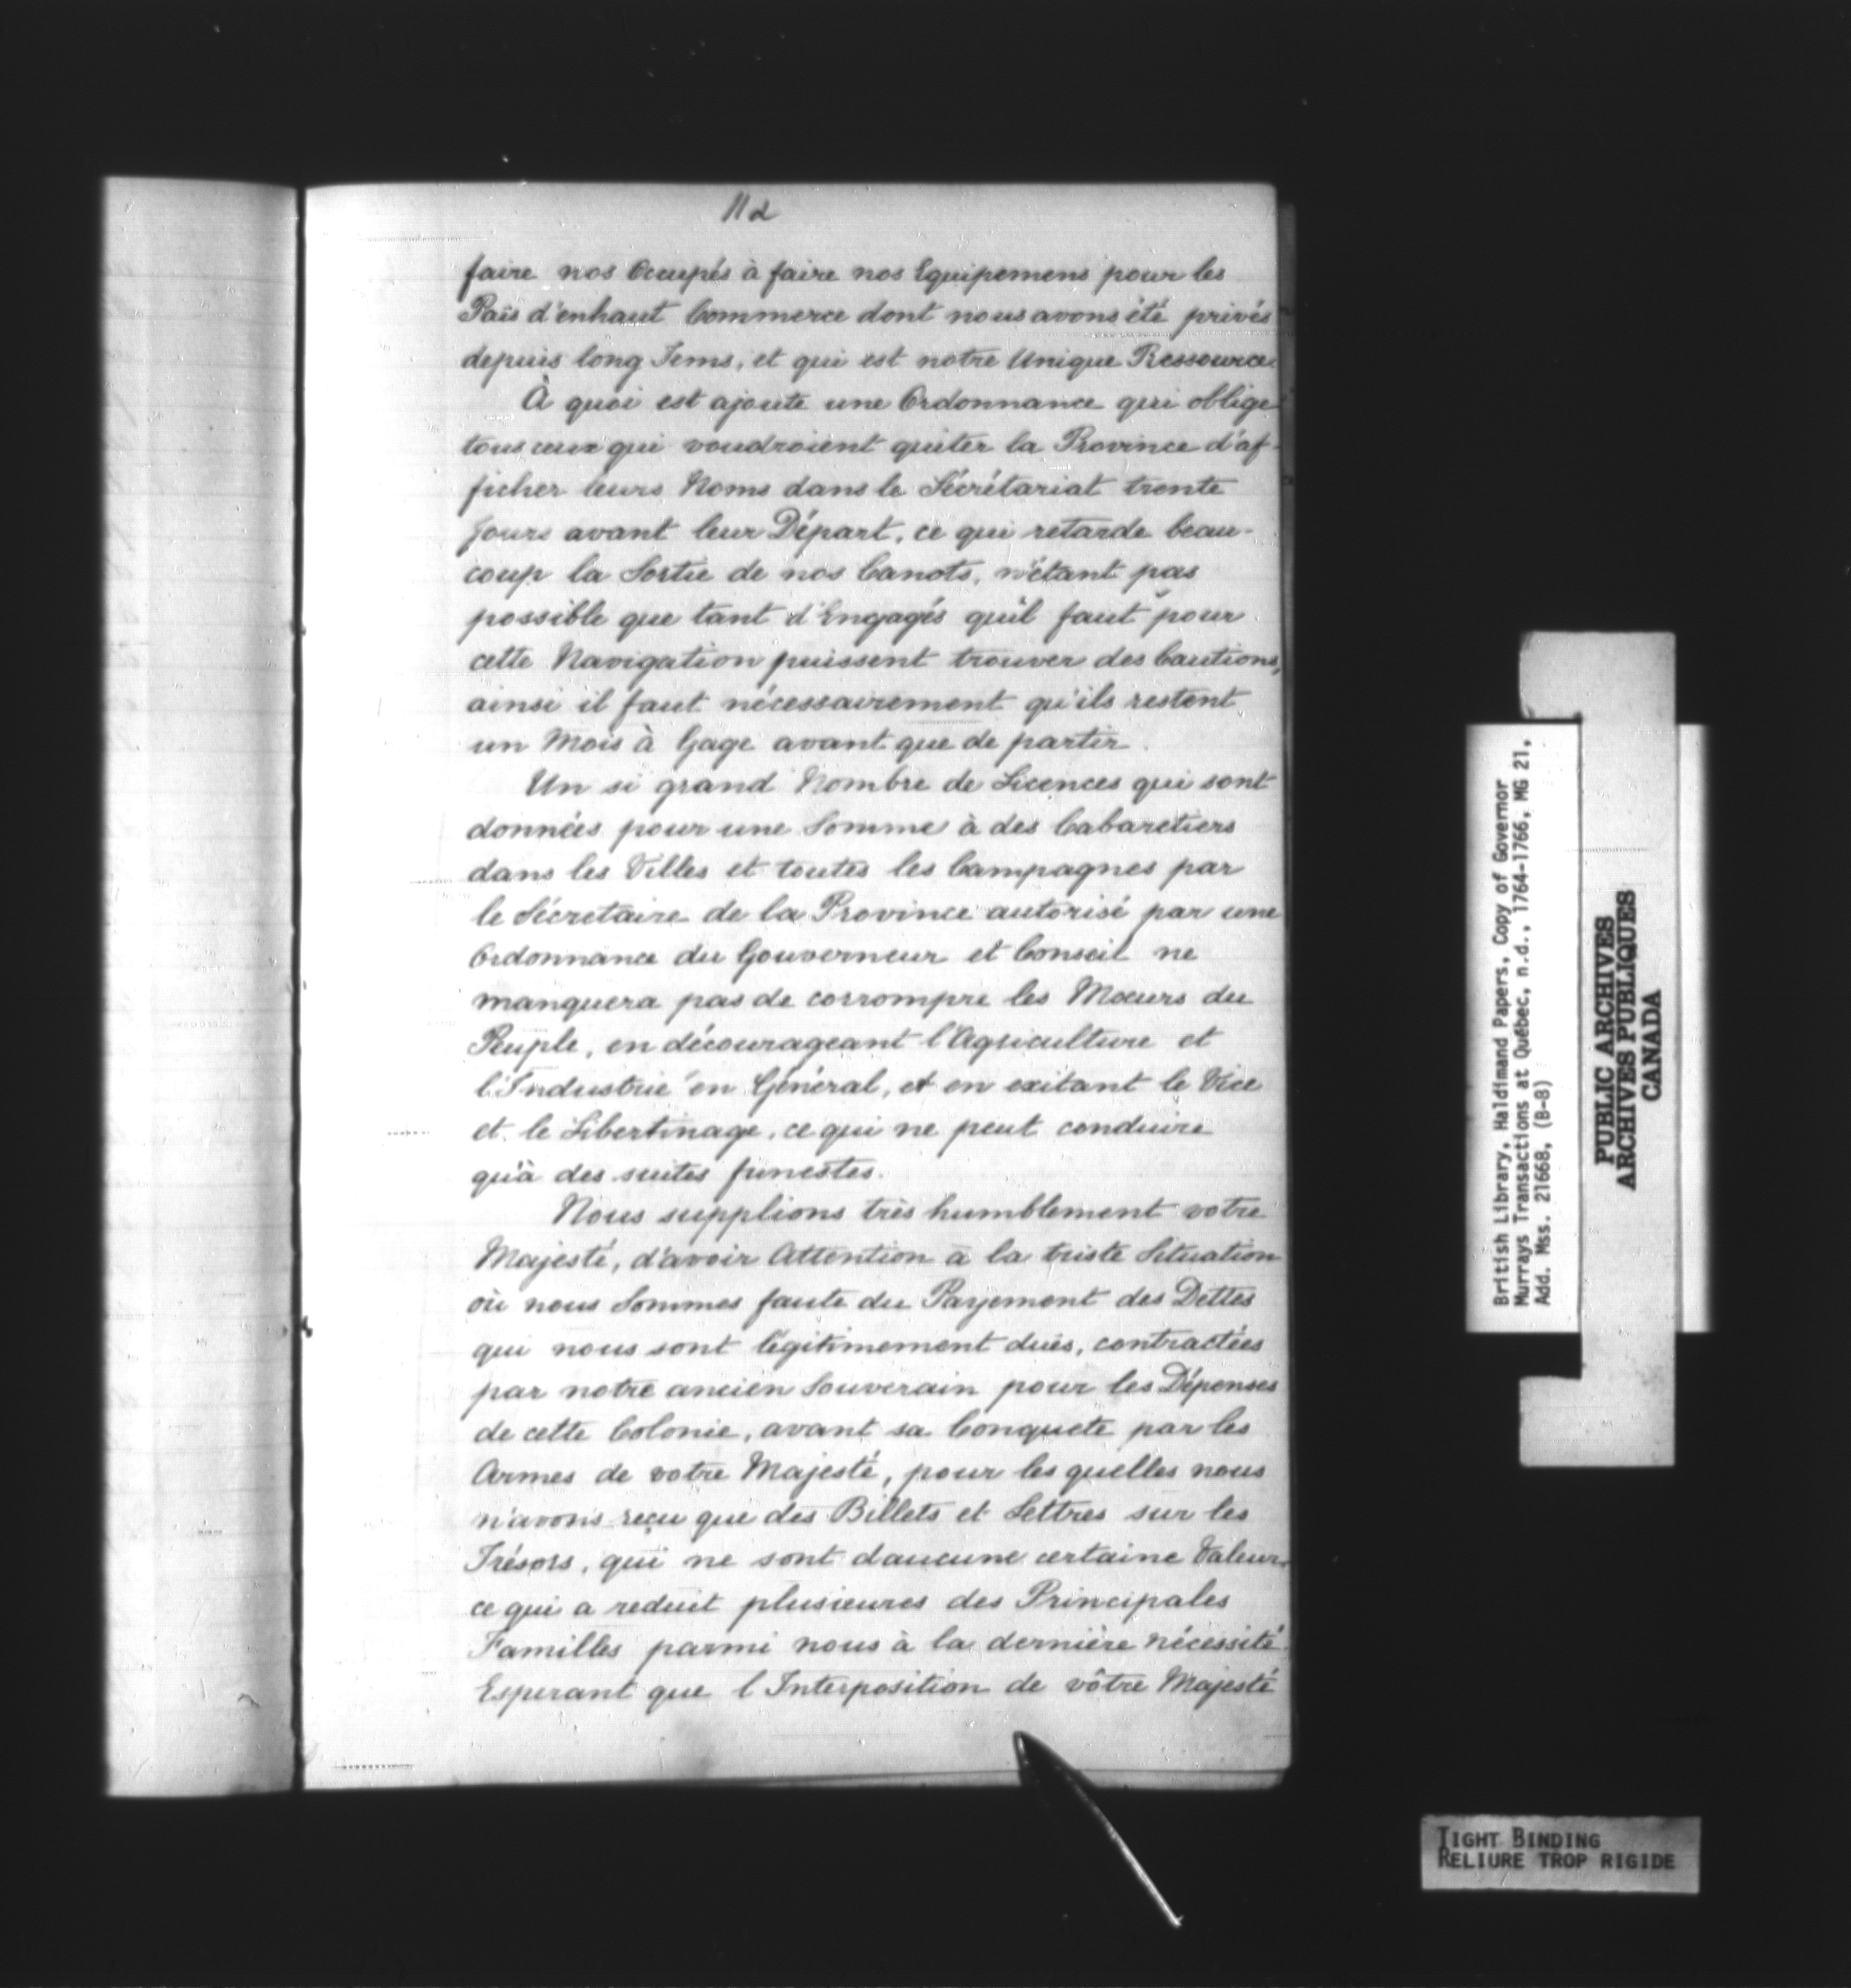 112
faire nos Occupés à faire nos Equipemens pour les
Païs d'enhaut Commerce dont nous avons été privés
depuis long Tems, et qui est notre Unique Ressource.
À quoi est ajouté une Ordonnance qui oblige
tous ceux qui voudroient quiter la Province d'af-
ficher leurs Noms dans le Sécrétariat trente
Jours avant leur Départ, ce qui retarde beau-
coup la Sortie de nos Canots, n'étant pas
possible que tant d'Engagés qu'il faut pour
cette Navigation puissent trouver des Cautions,
ainsi il faut nécessairement qu'ils restent
un Mois à Gage avant que de partir.
Un si grand Nombre de Licences qui sont
données pour une Somme à des Cabaretiers
dans les Villes et toutes les Campagnes par
le Sécretaire de la Province autorisé par une
Ordonnance du Gouverneur et Conseil ne
manquera pas de corrompre les Moeurs du
Peuple, en décourageant l'Agriculture et
l'Industrie en Général, et en exitant le Vice
et le Libertinage, ce qui ne peut conduire
qu'à des suites funestes.
Nous supplions très humblement votre
Majesté, d'avoir Attention à la triste Situation
où nous Sommes faute du Payement des Dettes
qui nous sont légitimement dués, contractées
par notre ancien Souverain pour les Dépenses
de cette Colonie, avant sa Conquete par les
Armes de votre Majesté, pour les quelles nous
n'avons reçu que des Billets et Lettres sur les
Trésors, qui ne sont d'aucune certaine Valeur,
ce qui a reduit plusieures des Principales
Familles parmi nous à la dernière nécessité.
Esperant que l'Interposition de vôtre Majesté
British Library, Haldimand Papers, Copy of Governor
Murrays Transactions at Québec, n.d., 1764-1766, MG 21,
Add. Mss. 21668, (B-8)
PUBLIC ARCHIVES
ARCHIVES PUBLIQUES
CANADA
TIGHT BINDING
RELIURE TROP RIGIDE